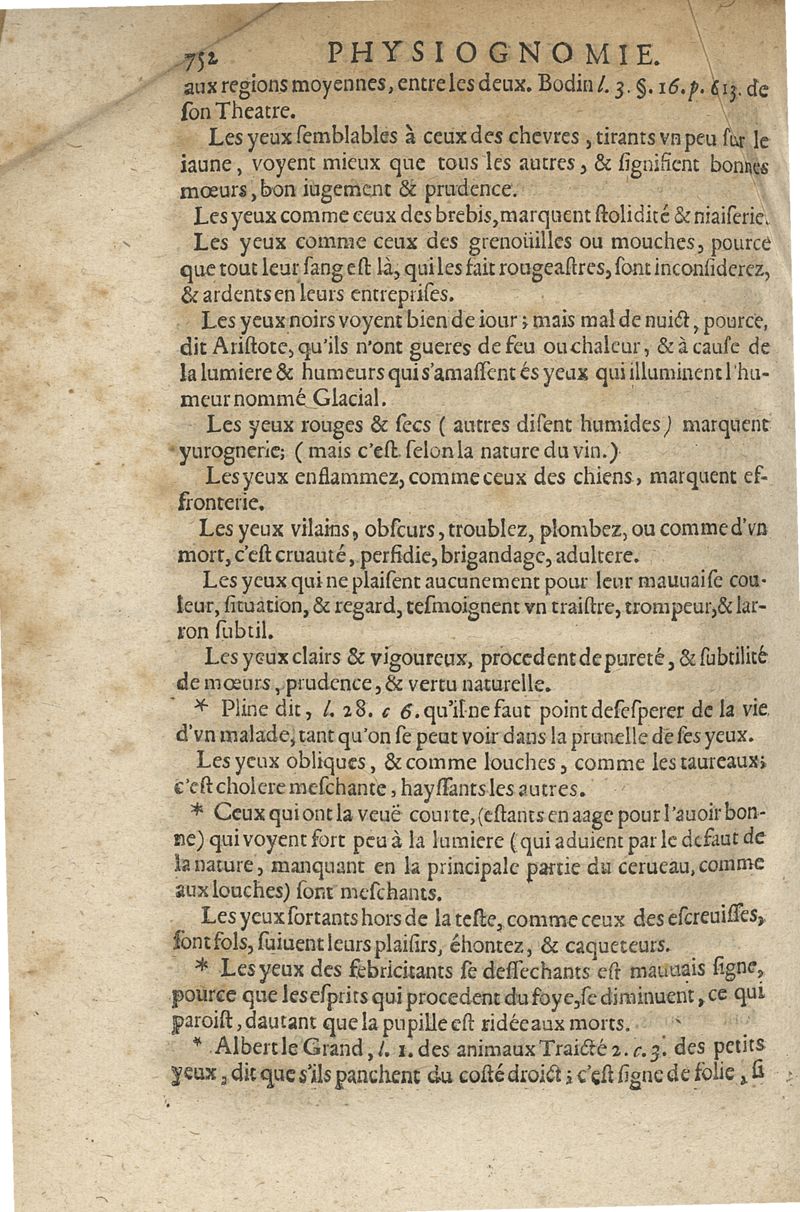 752 PHYSIOGNOMIE.
aux regions moyennes, entre les deux. Bodin l. 3. §. 16. p. 613. de
ſon Theatre.
Les yeux ſemblables à ceux des chevres, tirants vn peu ſur le
iaune, voyent mieux que tous les autres, & ſignifient bonnes
mœurs, bon iugement & prudence.
Les yeux comme ceux des brebis, marquent ſtolidité & niaiſerie.
Les yeux comme ceux des grenoüilles ou mouches, pource
que tout leur ſang eſt là, qui les fait rougeaſtres, ſont inconſiderez,
& ardents en leurs entrepriſes.
Les yeux noirs voyent bien de iour; mais mal de nuict, pource,
dit Ariſtote, qu'ils n'ont gueres de feu ou chaleur, & à cauſe de
la lumiere & humeurs qui s'amaſſent és yeux qui illuminent l'hu-
meur nommé Glacial.
Les yeux rouges & ſecs ( autres diſent humides) marquent
yurognerie; ( mais c'eſt ſelon la nature du vin.)
Les yeux enflammez, comme ceux des chiens, marquent ef-
fronterie.
Les yeux vilains, obſcurs, troublez, plombez, ou comme d'vn
mort, c'eſt cruauté, perfidie, brigandage, adultere.
Les yeux qui ne plaiſent aucunement pour leur mauuaiſe cou-
leur, ſituation, & regard, teſmoignent vn traiſtre, trompeur, & lar-
ron ſubtil.
Les yeux clairs & vigoureux, procedent de pureté, & ſubtilité
de mœurs, prudence, & vertu naturelle.
* Pline dit, l. 28. c 6. qu'il ne faut point deſeſperer de la vie
d'vn malade, tant qu'on ſe peut voir dans la prunelle de ſes yeux.
Les yeux obliques, & comme louches, comme les taureaux;
c'eſt cholere meſchante, hayſſants les autres.
* Ceux qui ont la veuë courte, (eſtants en aage pour l'auoir bon-
ne) qui voyent fort peu à la lumiere ( qui aduient par le defaut de
la nature, manquant en la principale partie du cerueau, comme
aux louches) ſont meſchants.
Les yeux ſortants hors de la teſte, comme ceux des eſcreuiſſes,
ſont fols, ſuiuent leurs plaiſirs, éhontez, & caqueteurs.
* Les yeux des febricitants ſe deſſechants eſt mauuais ſigne,
pource que les eſprits qui procedent du foye, ſe diminuent, ce qui
paroiſt, dautant que la pupille eſt ridée aux morts.
* Albert le Grand, l. 1. des animaux Traicté 2. c. 3. des petits
yeux, dit que s'ils panchent du coſté droict; c'eſt ſigne de folie, ſi